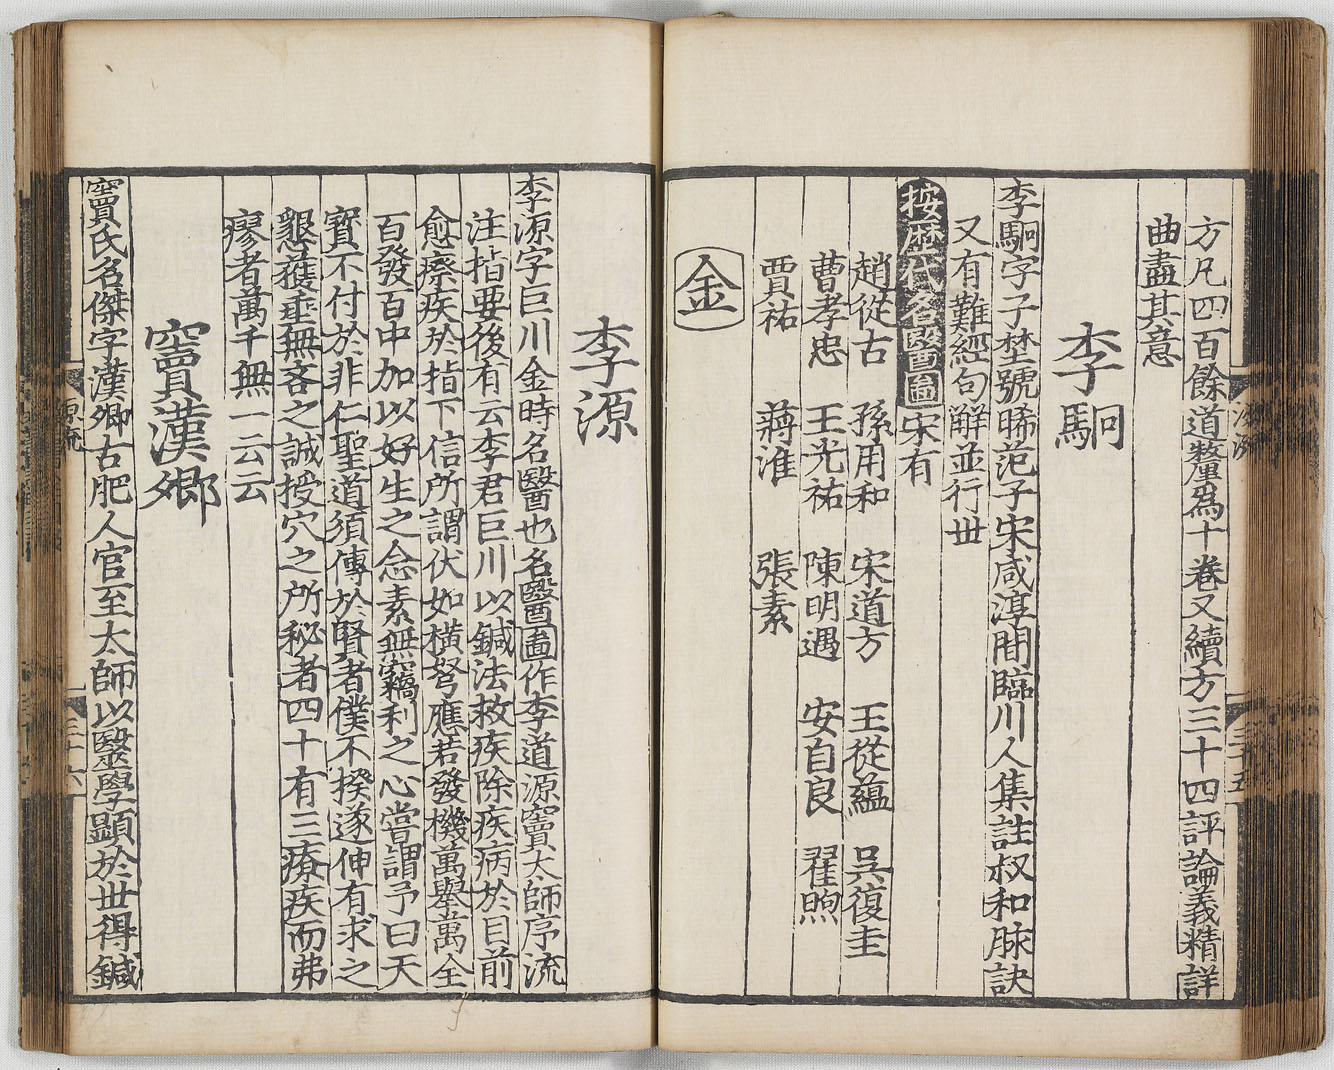 方凡四百餘道釐爲十卷又續方三十四評論義精詳
曲盡其意
李駉
李駉字子埜號晞范子宋咸淳間臨川人集註叔和脉訣
又有難經句解並行丗
按歷代名醫啚宋有
趙從古 孫用和 宋道方 王從蘊 吳復圭
曹孝忠 王光祐 陳明遇 安自良 翟煦
賈祐 蔣淮 張素
金
李源
李源字巨川金時名醫也名醫啚作李道源竇太師序流
注指要後有云李君巨川以鍼法救疾除疾病於目前
愈瘵疾於指下信所謂伏如橫弩應若發機萬舉萬全
百發百中加以好生之念素無竊利之心嘗謂予曰天
寳不付於非仁聖道須傳於賢者僕不揆遂伸有求之
懇獲垂無吝之誠授穴之所秘者四十有三療疾而弗
瘳者萬千無一云云
竇漢卿
竇氏名傑字漢卿古肥人官至太師以醫學顯於丗得鍼
源流
三十六
三十五